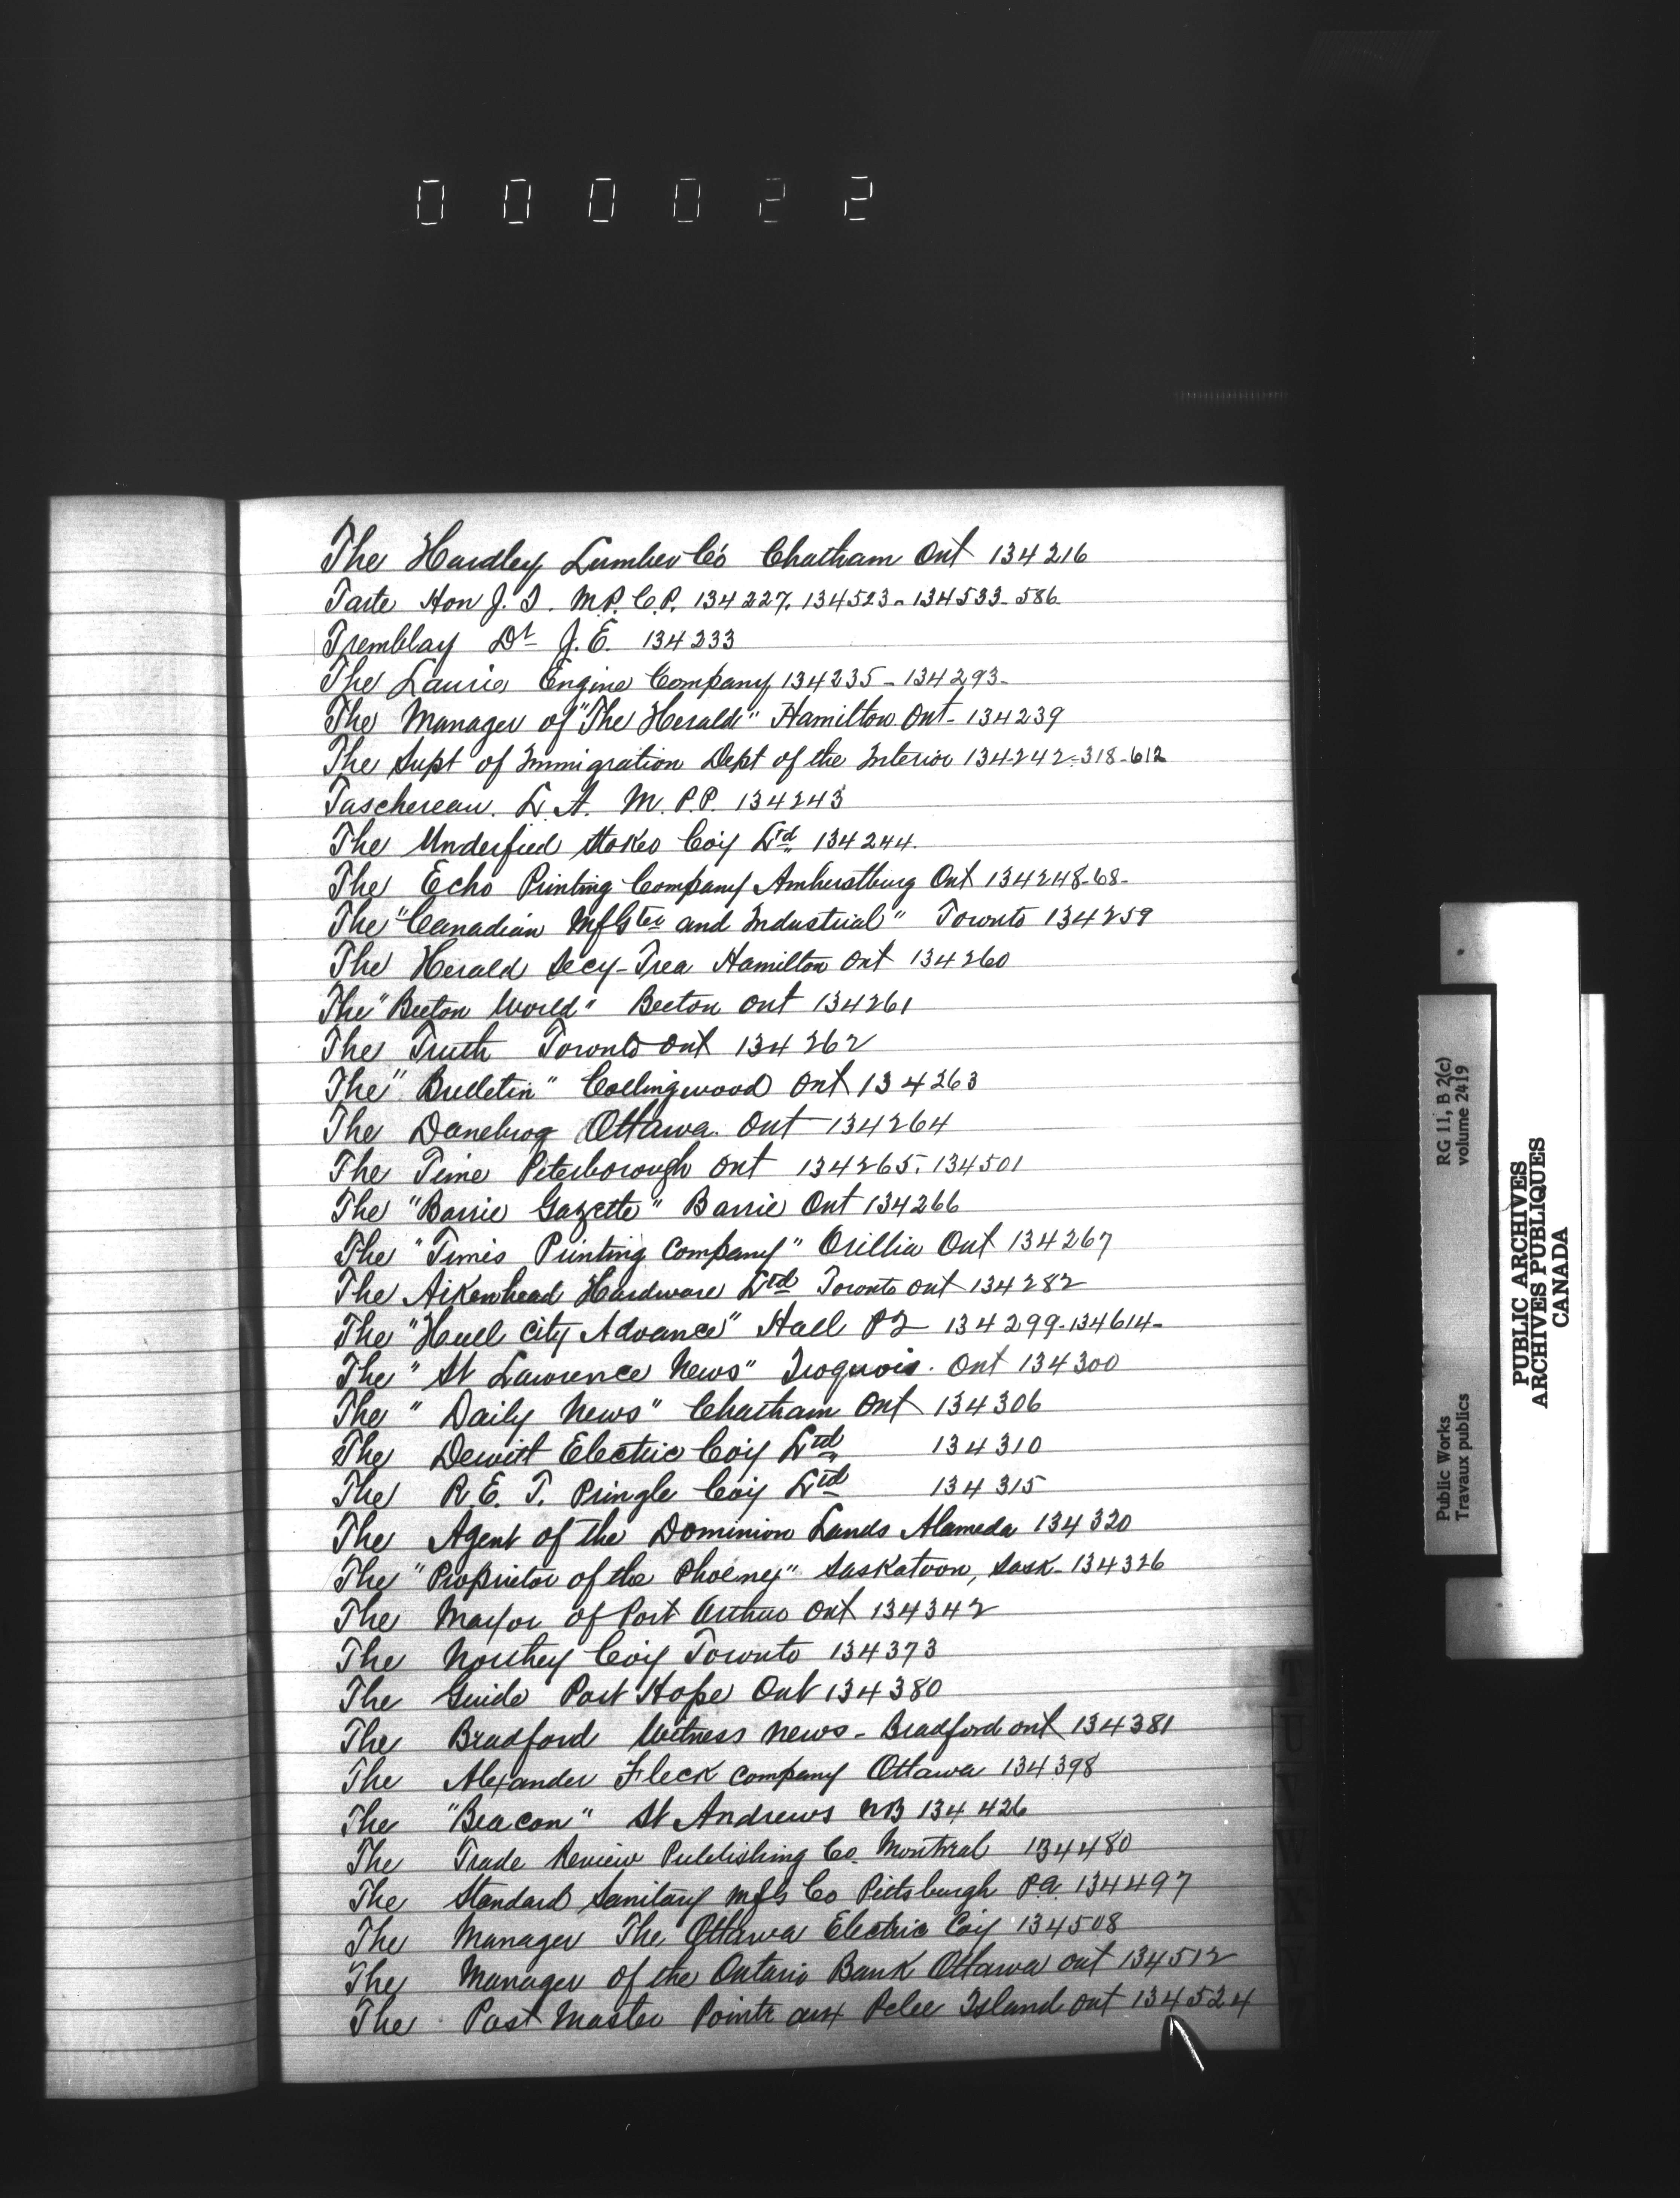 000022
The Hardley Lumber Co's Chatham Ont 134216
Tarte Hon J. I. M.P. C.P. 134227. 134523 - 134533 - 586
Tremblay Dr J. E. 134233
The Laurie Engine Company 134235 - 134293 -
The Manager of "The Herald" Hamilton Ont - 134239
The Supt of Immigration Dept of the Interior 134242 - 318 - 612
Taschereau. L. A. M. P. P. 134243
The Underfied Stokes Coiy Ltd 134244.
The Echo Printing Company Amherstburg Ont 134248 - 68 -
The "Canadian and Industrial" Toronto 134259
The Herald Secy - Trea Hamilton Ont 134260
The "Beeton World" Beeton Ont 134261
The Truth Toronto Ont 134262
The "Bulletin" Collingwood Ont 134263
The Danebrog Ottawa. Ont 134264
The Time Peterborough Ont 134265. 134501
The "Barrie Gazette" Barrie Ont 134266
The "Times Printing Company" Orillia Ont 134267
The Aikenhead Hardware Ltd Toronto Ont 134282
The "Hull City Advance" Hull PQ 134299 - 134614 -
The "St Lawrence News" Iroquois. Ont 134300
The "Daily News" Chatham Ont 134306
The Dewitt Electric Coiy Ltd 134310
The R. E. T. Pringle Coiy Ltd 134315
The Agent of the Dominion Lands Alameda 134320
The "Proprietor of the Phoeney" Saskatoon, Sask - 134326
The Mayor of Port Arthur Ont 134342
The Northey Coiy Toronto 134373
The Guide Port Hope Ont 134380
The Bradford Witness News - Bradford Ont 134381
The Alexander Fleck Company Ottawa 134398
The "Beacon" St Andrews NB 134426
The Trade Review Publishing Co. Montreal 134480
The Standard Sanitary Mfg Co Pittsburgh PA. 134497
The Manager The Ottawa Electric Coiy 134508
The Manager of the Ontario Bank Ottawa Ont 134512
The Post Master Pointe aux Pelee Island Ont 134524
T
U
RG 11, B 2(c)
volume 2419
Public Works
Travaux publics
PUBLIC ARCHIVES
ARCHIVES PUBLIQUES
CANADA